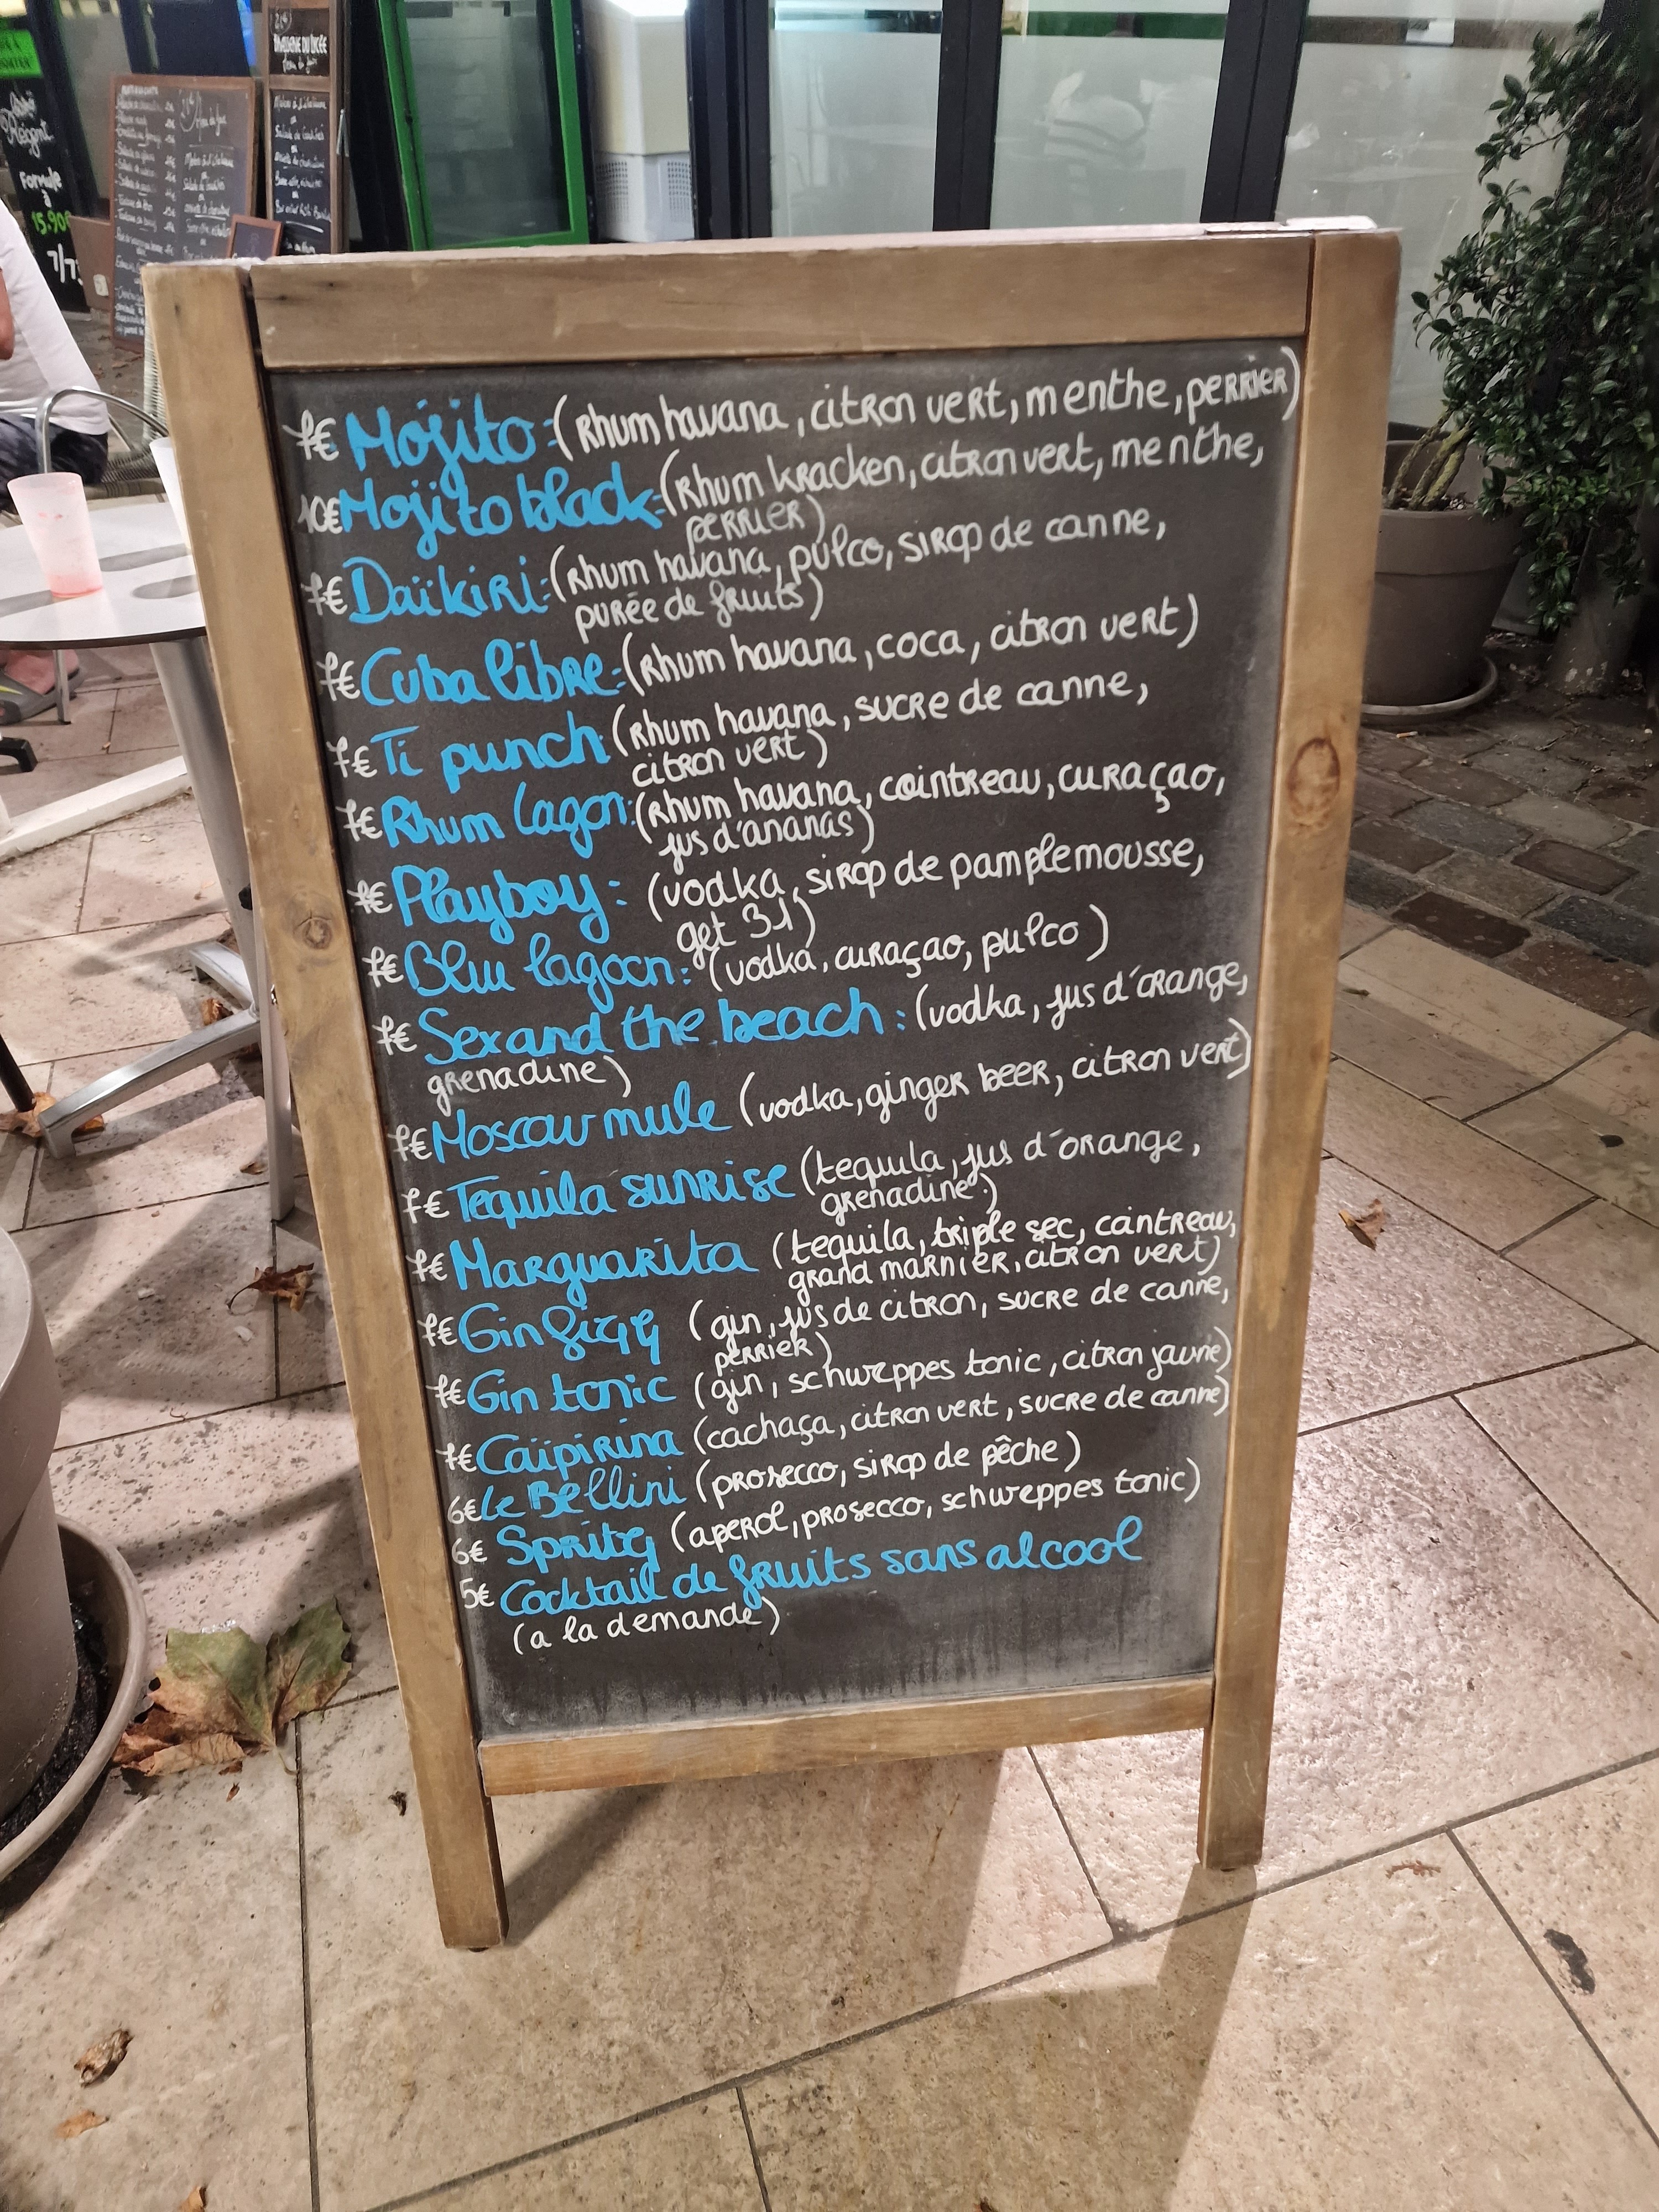 BRASSERIE DU LYCÉE
Formule
à
15.90€
7/7
7€ Mojito:(Rhum havana, citron vert, menthe, perrier)
10€ Mojito black:(Rhum kracken, citron vert, menthe,
perrier)
7€ Daïkiri:(Rhum havana, pulco, sirop de canne,
purée de fruits)
7€ Cuba libre:(Rhum havana, coca, citron vert)
7€ Ti punch:(Rhum havana, sucre de canne,
citron vert)
7€ Rhum lagon:(Rhum havana, cointreau, curaçao,
jus d'ananas)
7€ Playboy: (vodka, sirop de pamplemousse,
get 31)
7€ Blue lagoon: (vodka, curaçao, pulco)
7€ Sex and the beach: (vodka, jus d'orange,
grenadine)
7€ Moscow mule (vodka, ginger beer, citron vert)
7€ Tequila sunrise (tequila, jus d'orange,
grenadine)
7€ Marguarita (tequila, triple sec, cointreau,
grand marnier, citron vert)
7€ Gin fizz (gin, jus de citron, sucre de canne,
perrier)
7€ Gin tonic (gin, schweppes tonic, citron jaune)
7€ Caïpirina (cachaça, citron vert, sucre de canne)
6€ Le Bellini (prosecco, sirop de pêche)
6€ Spritz (aperol, prosecco, schweppes tonic)
5€ Cocktail de fruits sans alcool
(a la demande)